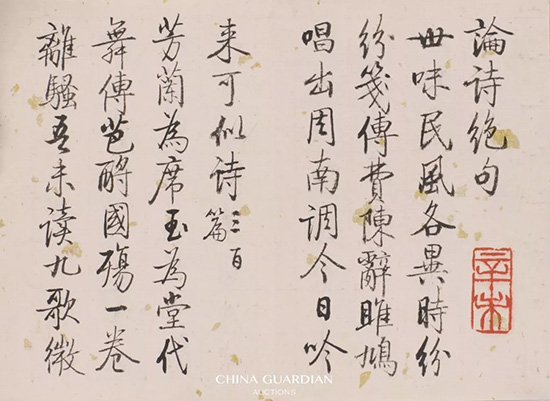 論诗绝句
世味民風各異時紛
紛箋傳費陳辭雎鳩
唱出周南調今日吟
来可似诗三百篇
芳蘭為席玉為堂代
舞傳芭酹國殤一卷
離騷吾未读九歌微
辛未
CHINA GUARDIAN
AUCTIONS